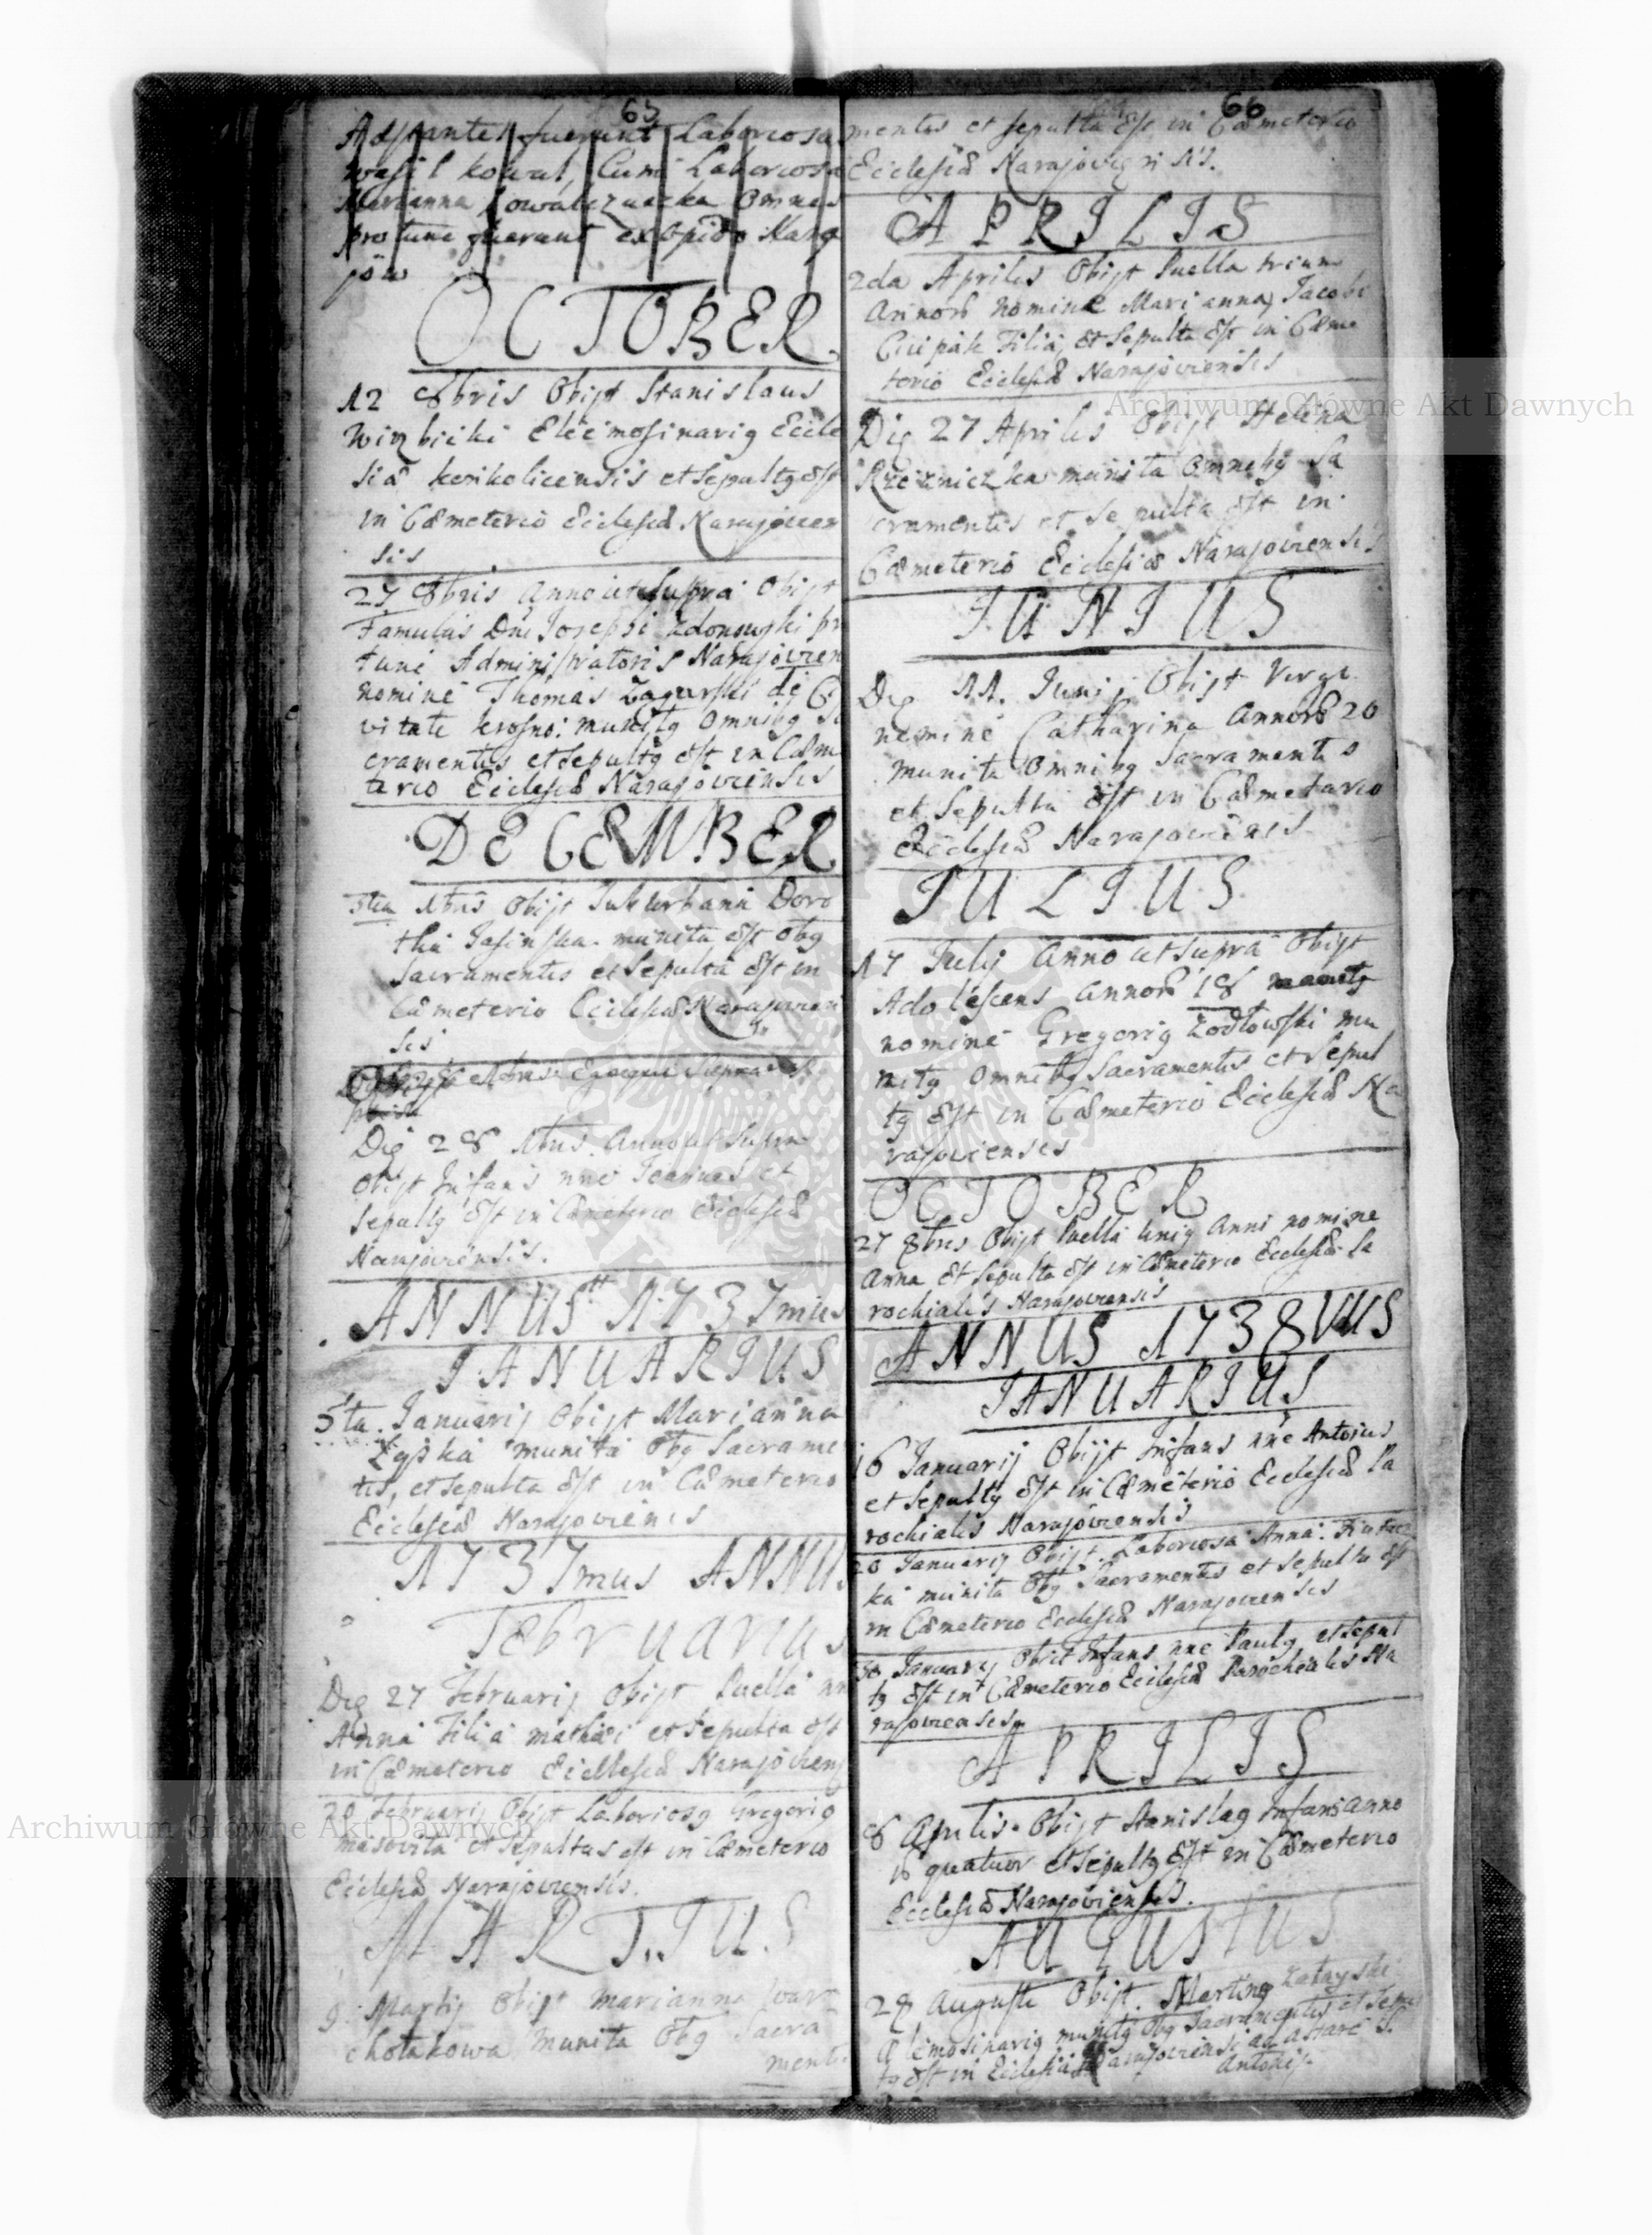 65
Adstantes fuerunt Laboriosus
Wasil kowal, Cum Laboriosa
Marianna kowalcznacka Omnes
pro tunc fuerunt ex Opido Nara
jow
OCTOBER
12 8bris Obijt Stanislaus
Wirzbicki Eleemosinarig Eccle
siæ et Sepultg Est
in Cæmeterio Eclesiæ Narajovien
sis
27 8bris Anno ut Supra Obijt
Famulus Dni Josephi pro
tunc Administratoris Narajovien
nomine Thomas Zagurski de Ci
vitate krosno: munitg Omnibg Sa
cramentis et Sepultg Est in Cæm
terio Eclesiæ Narajoviensis
DECEMBER
3tia Xbris Obijt Suburbana Doro
thea Jasinska munita Est Obg
Sacramentis et Sepulta Est in
Cæmeterio Ecclesiæ Narajovien
sis
Die 28 Xbris Anno ut Supra
Obijt Infans nne Joannes et
Sepultg Est in Cæmeterio Ecclesiæ
Narajoviensis.
ANNUS 1737mus
JANUARIUS
5ta Januarij Obijt Marianna
Łyska munita Obg Sacrame
tis, et Sepulta Est in Cæmeterio
Ecclesiæ Narajoviensis
1737mus ANNUS
Februarius
Die 27 Februarij Obijt Puella nn
Anna Filia mathæi et Sepulta Est
in Cæmeterio Ecclesiæ Narajoviens
20 Februarij Obijt Laboriosg Gregorig
masovita et Sepultus est in Cæmeterio
Ecclesiæ Narajoviensis.
MARTIUS
9. Martij Obijt Marianna
munita Obg Sacra
menti
66
mentis et Sepulta Est in Cæmeterio
Ecclesiæ Narajoviensis.
APRILIS
2da Aprilis Obijt Puella trium
Annorũ nomine Marianna, Jacobi
Filia, Et Sepulta Est in Cæme
terio Ecclesiæ Narajoviensis
Die 27 Aprilis Obijt Helena
Rzezniczka munita Omnibg Sa
cramentis et Sepulta Est in
Cæmeterio Ecclesiæ Narajoviensis
JUNIUS
Die 11. Junij Obijt Virgo
nomine Catharina Annorũ 20
munita Omnibg Sacramentis
et Sepulta Est in Cæmeterio
Ecclesiæ Narajoviensis
JULIUS
17 Julij Anno ut Supra Obijt
Adolescens Annorũ 18
nomine Gregorig Zodłowski mu
nitg Omnibg Sacramentis et Sepul
tg Est in Cæmeterio Ecclesiæ Na
rajoviensis
OCTOBER
27 8bris Obijt Puella Unig Anni nomine
Anna Et Sepulta Est in Cæmeterio Ecclesiæ Pa
rochialis Narajoviensis
ANNUS 1738VUS
JANUARIUS
16 Januarij Obijt Infans nne Antonius
et Sepultg Est in Cæmeterio Ecclesiæ Pa
rochialis Narajoviensis
20 Januarij Obijt. Laboriosa Anna.
ka munita Obg Sacramentis et Sepulta Est
in Cæmeterio Ecclesiæ Narajoviensis
30 Januarij Obiit Infans nne Paulg et Sepul
tg Est in Cæmeterio Ecclesiæ Parochialis Na
rajoviensis
APRILIS
8 Aprilis Obijt Stanislag Infans anno
rũ quatuor et Sepultg Est in Cæmeterio
Ecclesiæ Narajoviensis.
AUGUSTUS
28 Augusti Obijt. Marting
Elemosinarig munitg Obg Sacramentis et Sepul
tg Est in Ecclesia Narajoviensi ad Altare S.
Antonij.
Archiwum Główne Akt Dawnych
Archiwum Główne Akt Dawnych